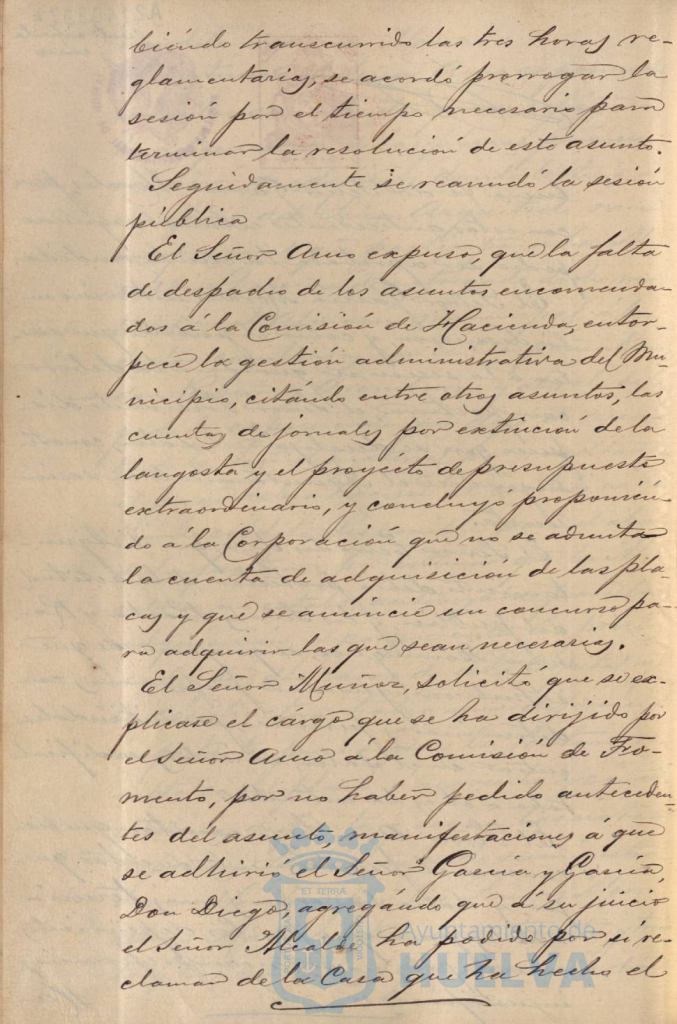 biéndo transcurrido las tres horas re-
glamentarias, se acordó prorrogar la
sesión por el tiempo necesario para
terminar la resolución de este asunto.
Seguidamente se reanudó la sesión
pública
El Señor Amo expuso, que la falta
de despacho de los asuntos encomenda-
dos á la Comisión de Hacienda, entor-
pece la gestión administrativa del Mu-
nicipio, citándo entre otros asuntos, las
cuentas de jornales por extinción de la
langosta y el proyécto de presupuesto
extraordinario, y concluyó proponién-
do á la Corporación que no se admita
la cuenta de adquisición de las pla-
cas y que se anuncie un concurso pa-
ra adquirir las que sean necesarias.
El Señor Muñoz, solicitó que se ex-
plicase el cárgo que se ha dirijido por
el Señor Amo á la Comisión de Fo-
mento, por no haber pedido anteceden-
tes del asunto, manifestaciones á que
se adhirió el Señor García y García,
Don Diego, agregándo que á su juicio
el Señor Alcalde ha podido por sí re-
clamar de la Casa que ha hecho el
Ayuntamiento de
HUELVA